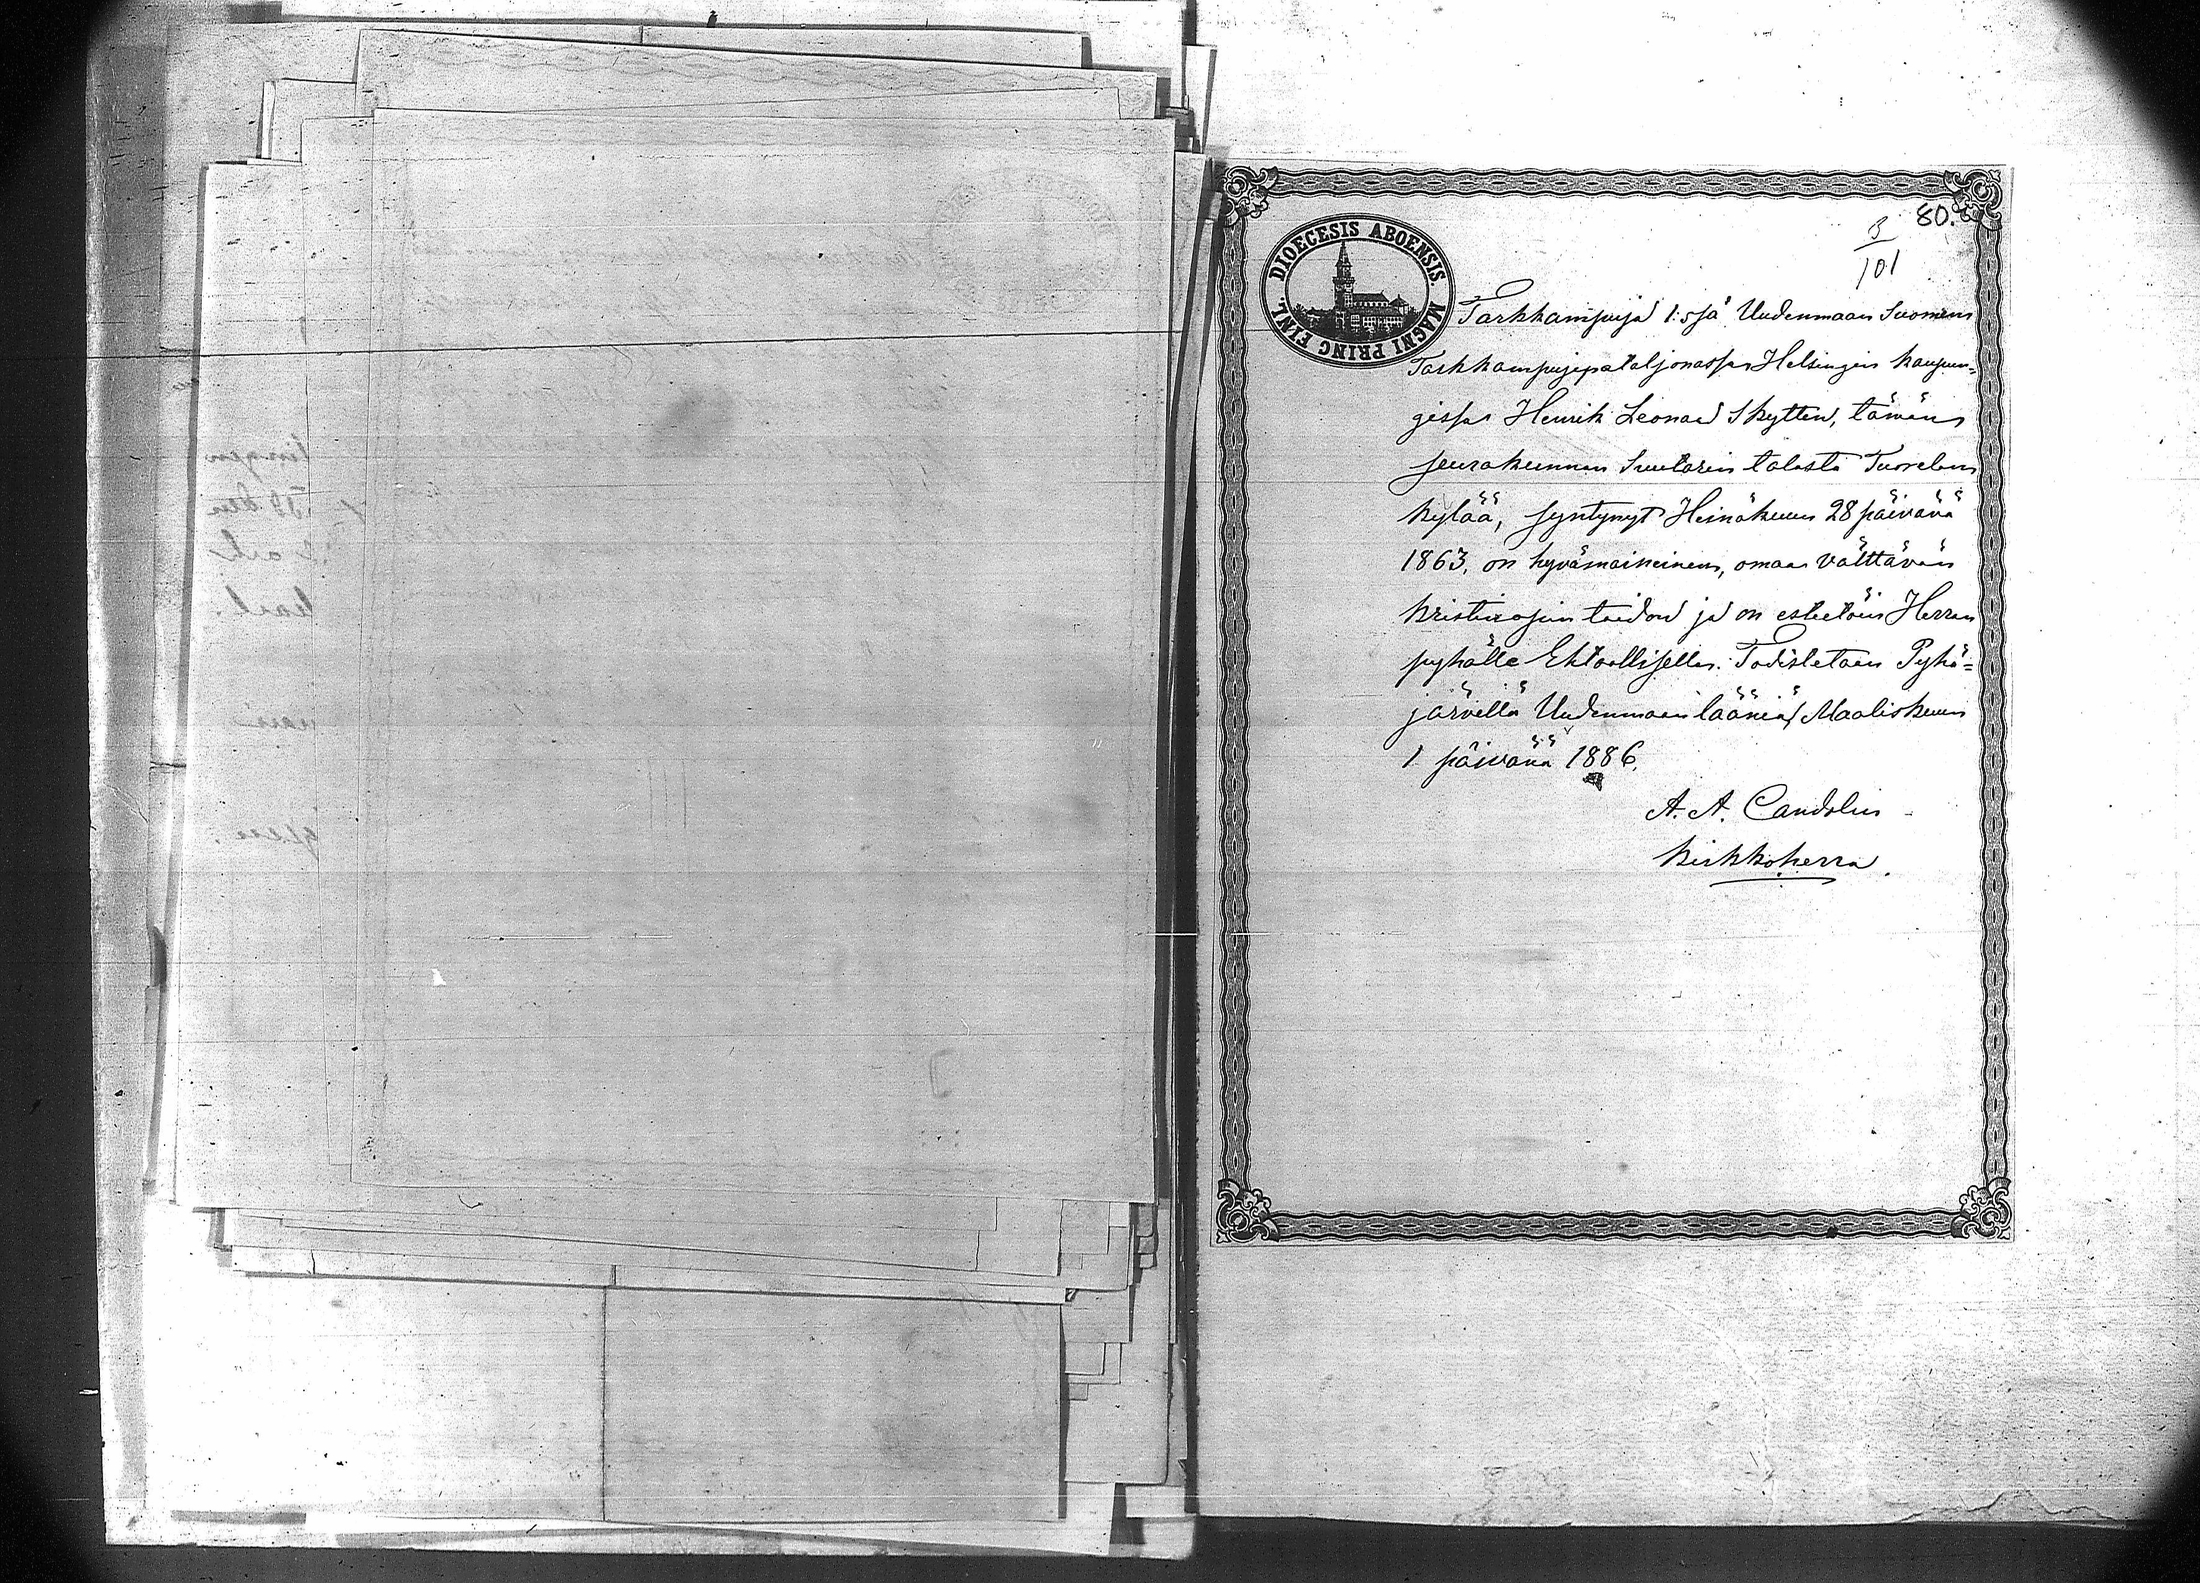 80.
3
101
DIOECESIS ABOENSIS. MAGNI PRINC FINL.
Tarkkampuja 1:ssä Uudenmaan Suomen
Tarkkampujapataljonassa Helsingin kaupun=
gissa Henrik Leonard Skyttén, tämän
seurakunnan Suutarin talosta Tuorelan
kylää, syntynyt Heinäkuun 28 päivänä
1863, on hyvämaineinen, omaa välttävän
kristinopin taidon ja on esteetöin Herran
pyhälle Ehtoolliselle. Todistetaan Pyhä=
järvellä Uudenmaan lääniä, Maaliskuun
1 päivänä 1886.
A. A. Candolin
Kirkkoherra.